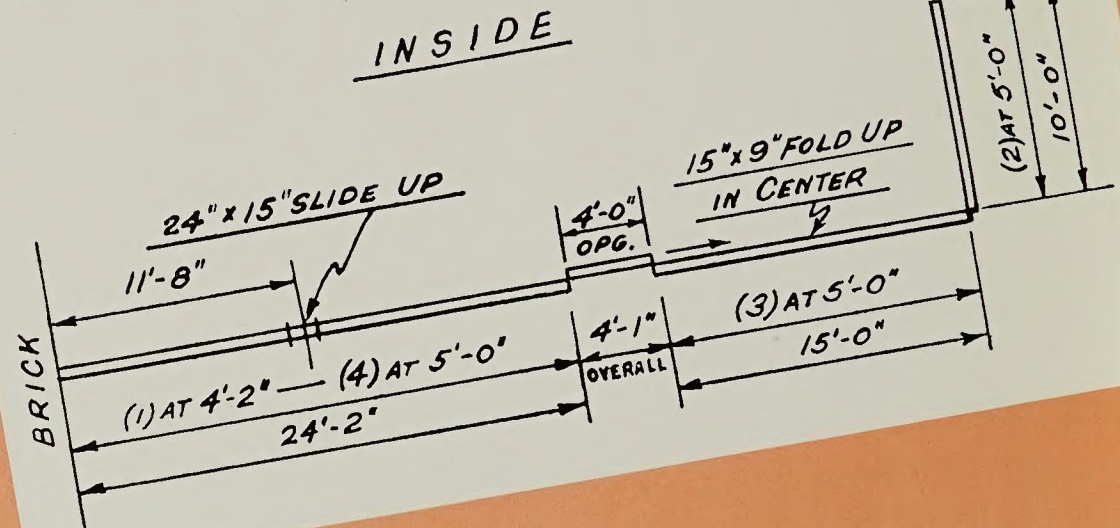 INSIDE
(2) AT 5'-0"
10'-0"
15" x 9" FOLD UP
IN CENTER
24" x 15" SLIDE UP
4'-0"
OPG.
11'-8"
BRICK
(1) AT 4'-2" — (4) AT 5'-0"
24'-2"
4'-1"
OVERALL
(3) AT 5'-0"
15'-0"